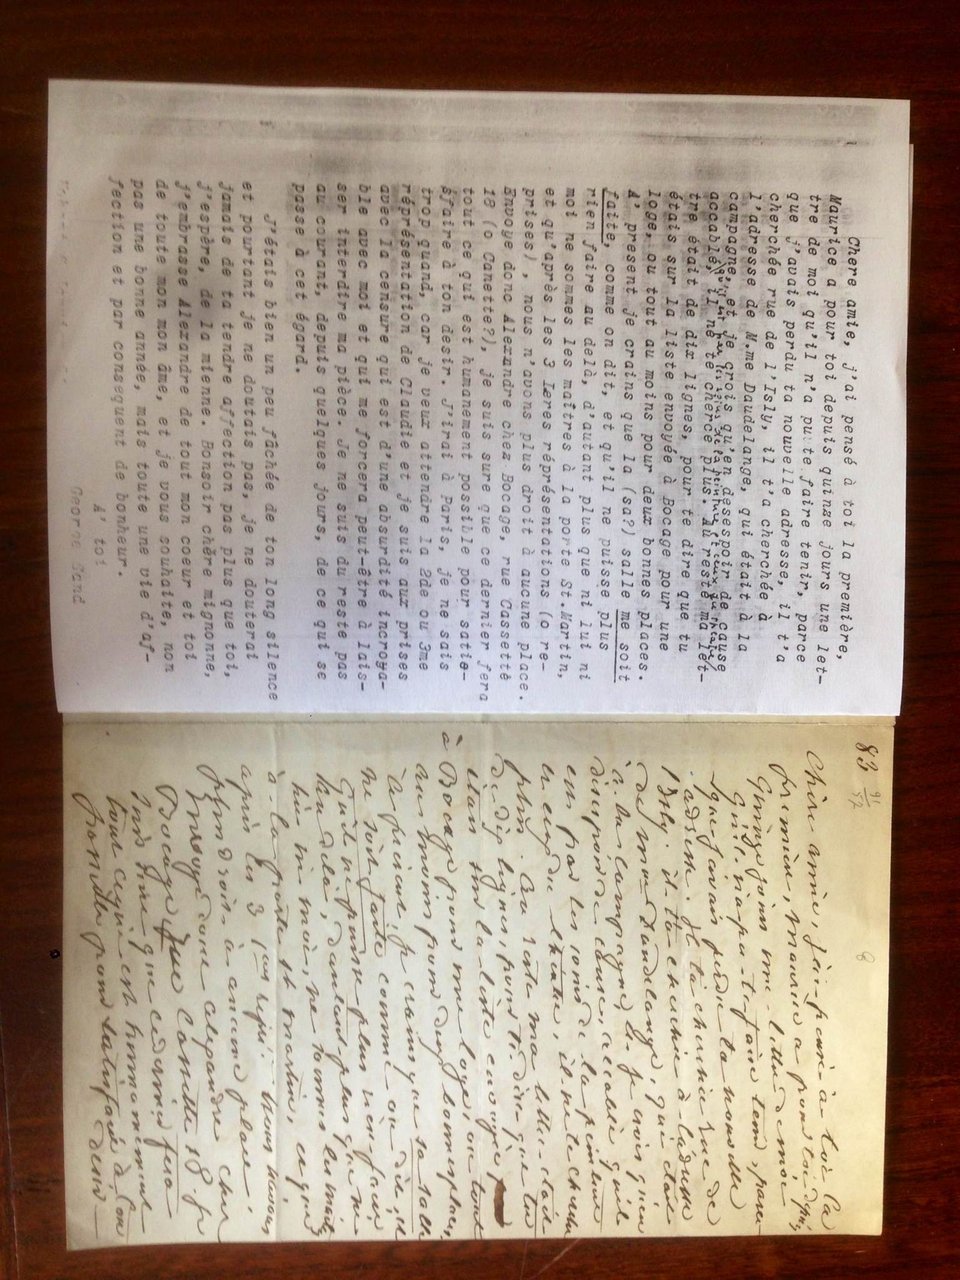 Chère amie, j'ai pensé à toi la première,
Maurice a pour toi depuis quinze jours une let-
tre de moi qu'il n'a pu te faire tenir, parce
que j'avais perdu ta nouvelle adresse, il t'a
cherchée rue de l'Isly, il t'a cherchée à
l'adresse de M.me Daudelange, qui était à la
campagne, et je crois qu'en desespoir de cause
accablé, il ne te cherche plus. Au reste ma let-
tre était de dix lignes, pour te dire que tu
étais sur la liste envoyée à Bocage pour une
loge, ou tout au moins pour deux bonnes places.
A' present je crains que la (sa?) salle me soit
faite, comme on dit, et qu'il ne puisse plus
rien faire au delà, d'autant plus que ni lui ni
moi ne sommes les maîtres à la porte St.Martin,
et qu'après les 3 Ieres réprésentations (o re-
prises), nous n'avons plus droit à aucune place.
Envoye donc Alexandre chez Bocage, rue Cassette
18 (o Canette?), je suis sure que ce dernier fera
tout ce qui est humanement possible pour satis-
faire à ton desir. J'irai à paris, je ne sais
trop quand, car je veux attendre la 2de ou 3me
réprésentation de Claudie et je suis aux prises
avec la censure qui est d'une absurdité incroya-
ble avec moi et qui me forcera peut-être à lais-
ser interdire ma pièce. Je ne suis du reste pas
au courant, depuis quelques jours, de ce qui se
passe à cet égard.
J'étais bien un peu fâchée de ton long silence
et pourtant je ne doutais pas, je ne douterai
jamais de ta tendre affection pas plus que toi,
j'espère, de la mienne. Bonsoir chère mignonne,
j'embrasse Alexandre de tout mon coeur et toi
de toute mon mon âme, et je vous souhaite, non
pas une bonne année, mais toute une vie d'af-
fection et par consequent de bonheur.
A' toi
George Sand
83 91/52
8
Chère amie, j'ai pensé à toi la
première, Maurice a pour toi depuis
quinze jours une lettre de moi
qu'il n'a pu te faire tenir, parce
que j'avais perdu ta nouvelle
adresse. Il t'a cherchée rue de
l'Isly. il t'a cherchée à l'adresse
de Mme Daudelange, qui était
à la campagne, et je crois qu'en
désespoir de cause, accablé qu'il
est par les soins de la peinture
et ceux du théâtre, il ne te cherche
plus. Au reste ma lettre était
de dix lignes, pour te dire que tu
étais sur la liste envoyée
à Bocage pour une loge, ou tout
au moins pour deux bonnes places,
à présent, je crains que sa salle
ne soit faite comme on dit, et
qu'il ne puisse plus rien faire
au delà, d'autant plus que ni
lui ni moi, ne sommes les maîtres
à la porte St martin, et qu'
après les 3 1ères repr. nous n'avons
plus droit à aucune place.
Envoye donc Alexandre chez
Bocage rue 18. je
suis sure que ce dernier fera
tout ce qui est humainement
possible pour satisfaire à ton desir